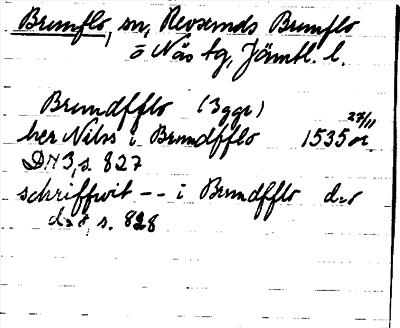 Brunflo, sn, Revsunds Brunflo
o Näs tg, Jämtl. l.
Brundfflo (3 ggr)
her Nilss i Brundfflo 1535 27/11 or.
DN 3, s. 827
schriffwit -- i Brundfflo d:o
d:o, s. 828